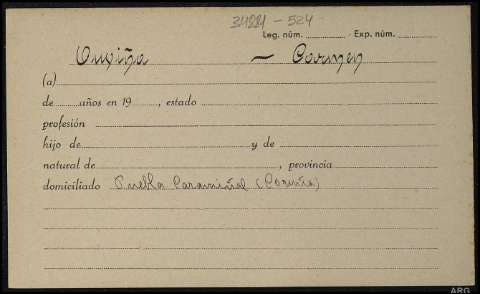 34221 - 524
Leg. núm. Exp. núm.
Ouviña - Carmen
(a)
de años en 19 , estado
profesión
hijo de y de
natural de , provincia
domiciliado Puebla Caramiñal (Coruña)
ARG